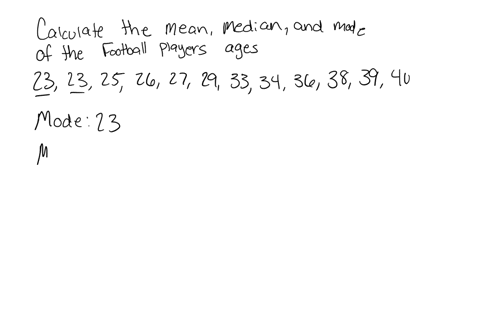 Calculate the mean, median, and mode
of the Football players ages
23, 23, 25, 26, 27, 29, 33, 34, 36, 38, 39, 40
Mode: 23
M